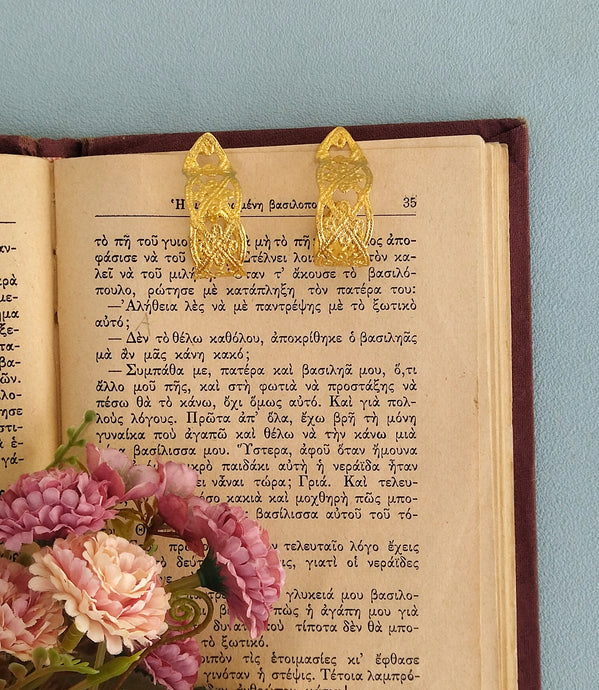 αν-
ρὰ
με-
ξε-
τα-
βα-
ῶν.
λο-
ησε
στι-
ἑ-
γά-
Ἡ μένη βασιλοπο 35
τὸ πῆ τοῦ γυιο μὴ τὸ πῆ ἀπο-
φάσισε νὰ τοῦ Στέλνει λοι τὸν κα-
λεῖ νὰ τοῦ μιλή ταν τ’ ἄκουσε τὸ βασιλό-
πουλο, ρώτησε μὲ κατάπληξη τὸν πατέρα του:
—Ἀλήθεια λὲς νὰ μὲ παντρέψης μὲ τὸ ξωτικὸ
αὐτό;
— Δὲν τὸ θέλω καθόλου, ἀποκρίθηκε ὁ βασιληᾶς
μὰ ἂν μᾶς κάνη κακό;
— Συμπάθα με, πατέρα καὶ βασιληᾶ μου, ὅ,τι
ἄλλο μοῦ πῆς, καὶ στὴ φωτιὰ νὰ προστάξης νὰ
πέσω θὰ τὸ κάνω, ὄχι ὅμως αὐτό. Καὶ γιὰ πολ-
λοὺς λόγους. Πρῶτα ἀπ’ ὅλα, ἔχω βρῆ τὴ μόνη
γυναίκα ποὺ ἀγαπῶ καὶ θέλω νὰ τὴν κάνω μιὰ
βασίλισσα μου. Ὕστερα, ἀφοῦ ὅταν ἤμουνα
κρὸ παιδάκι αὐτὴ ἡ νεράϊδα ἦταν
νἆναι τώρα; Γριά. Καὶ τελευ-
τόσο κακιὰ καὶ μοχθηρὴ πῶς μπο-
βασίλισσα αὐτοῦ τοῦ τό-
τελευταῖο λόγο ἔχεις
τὸ δεύτ ις, γιατὶ οἱ νεράϊδες
γλυκειά μου βασιλο-
πὼς ἡ ἀγάπη μου γιὰ
δυνατ τοῦ τίποτα δὲν θὰ μπο-
τὸ ξωτικό.
οιπὸν τὶς ἑτοιμασίες κι’ ἔφθασε
ἡ στέψις. Τέτοια λαμπρό-